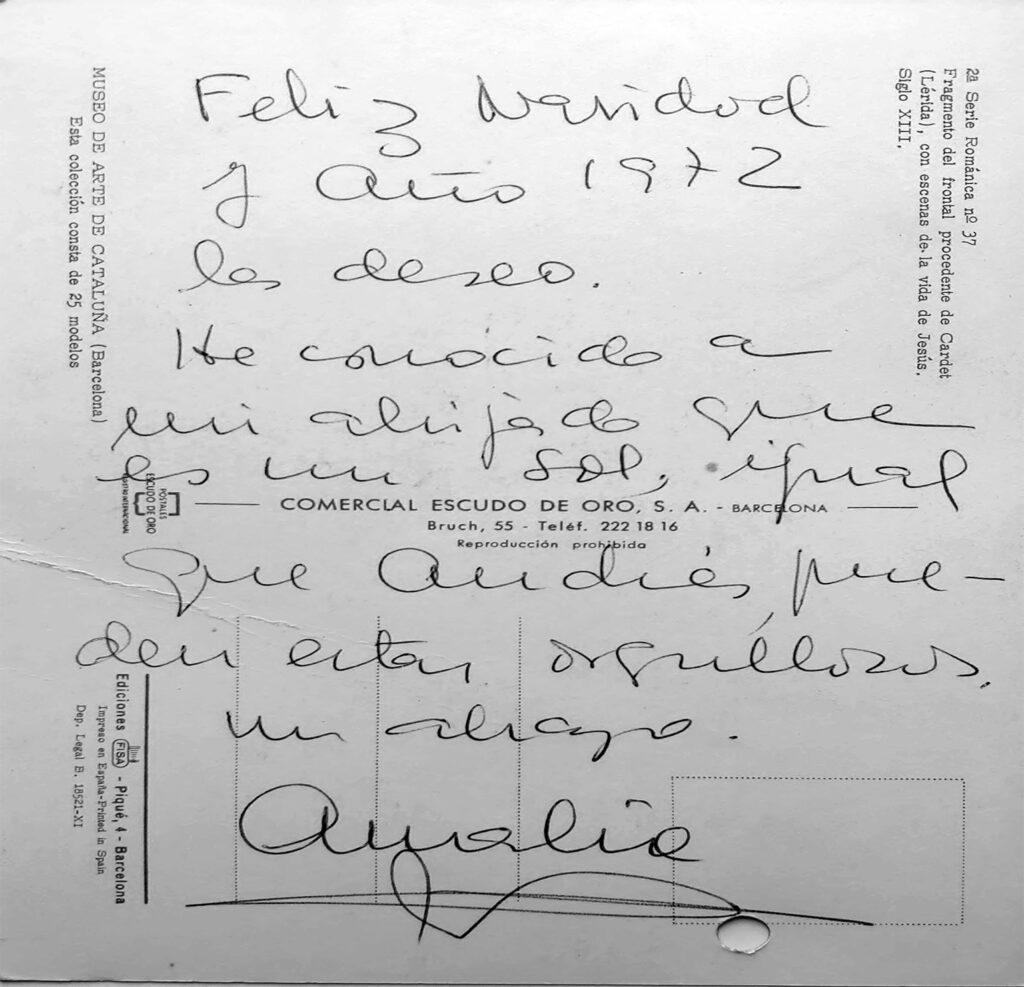 Feliz Navidad
y año 1972
les deseo.
He conocido a
mi ahijado que
es un sol, igual
que Andrés, pue-
den estar orgullosos.
un abrazo.
Amalia
2ª Serie Románica nº 37
Fragmento del frontal procedente de Cardet
(Lérida), con escenas de la vida de Jesús.
Siglo XIII.
MUSEO DE ARTE DE CATALUÑA (Barcelona)
Esta colección consta de 25 modelos
POSTALES
ESCUDO DE ORO
COMERCIAL ESCUDO DE ORO, S. A. - BARCELONA
Bruch, 55 - Teléf. 222 18 16
Reproducción prohibida
Ediciones FISA - Piqué, 4 - Barcelona
Impreso en España-Printed in Spain
Dep. Legal B. 18521-XI